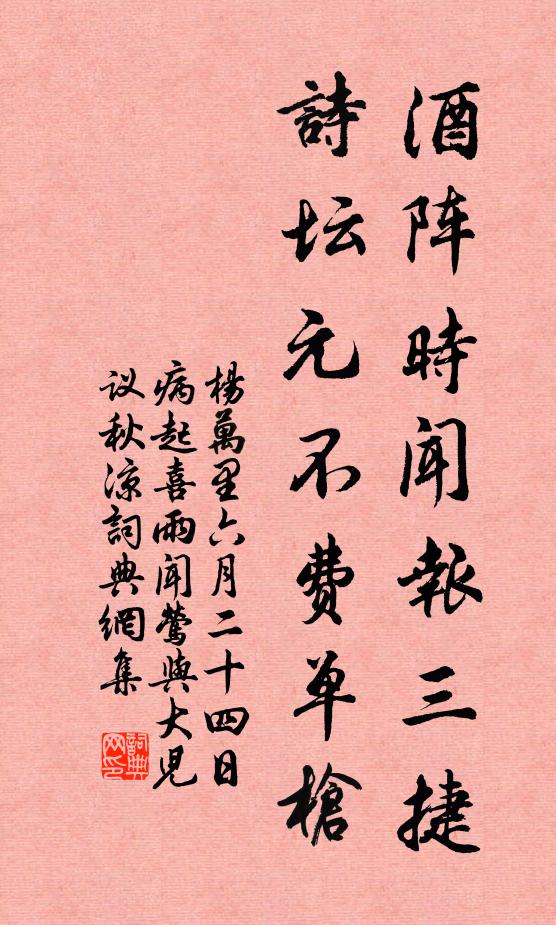 酒阵時闻報三捷
詩坛元不费单槍
楊萬里六月二十四日
病起喜雨闻莺與大兒
议秋凉詞典網集
詞典网印